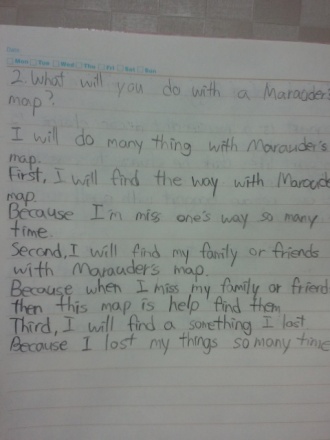 Date
Mon Tue Wed Thu Fri Sat Sun
2. What will you do with a Marauder's
map?
I will do many thing with Marauder's
map.
First, I will find the way with Maraude
map.
Because I'm miss one's way so many
time.
Second, I will find my family or friends
with Marauder's map.
Because when I miss my family or friend
then this map is help find them
Third, I will find a something I lost
Because I lost my things so many time